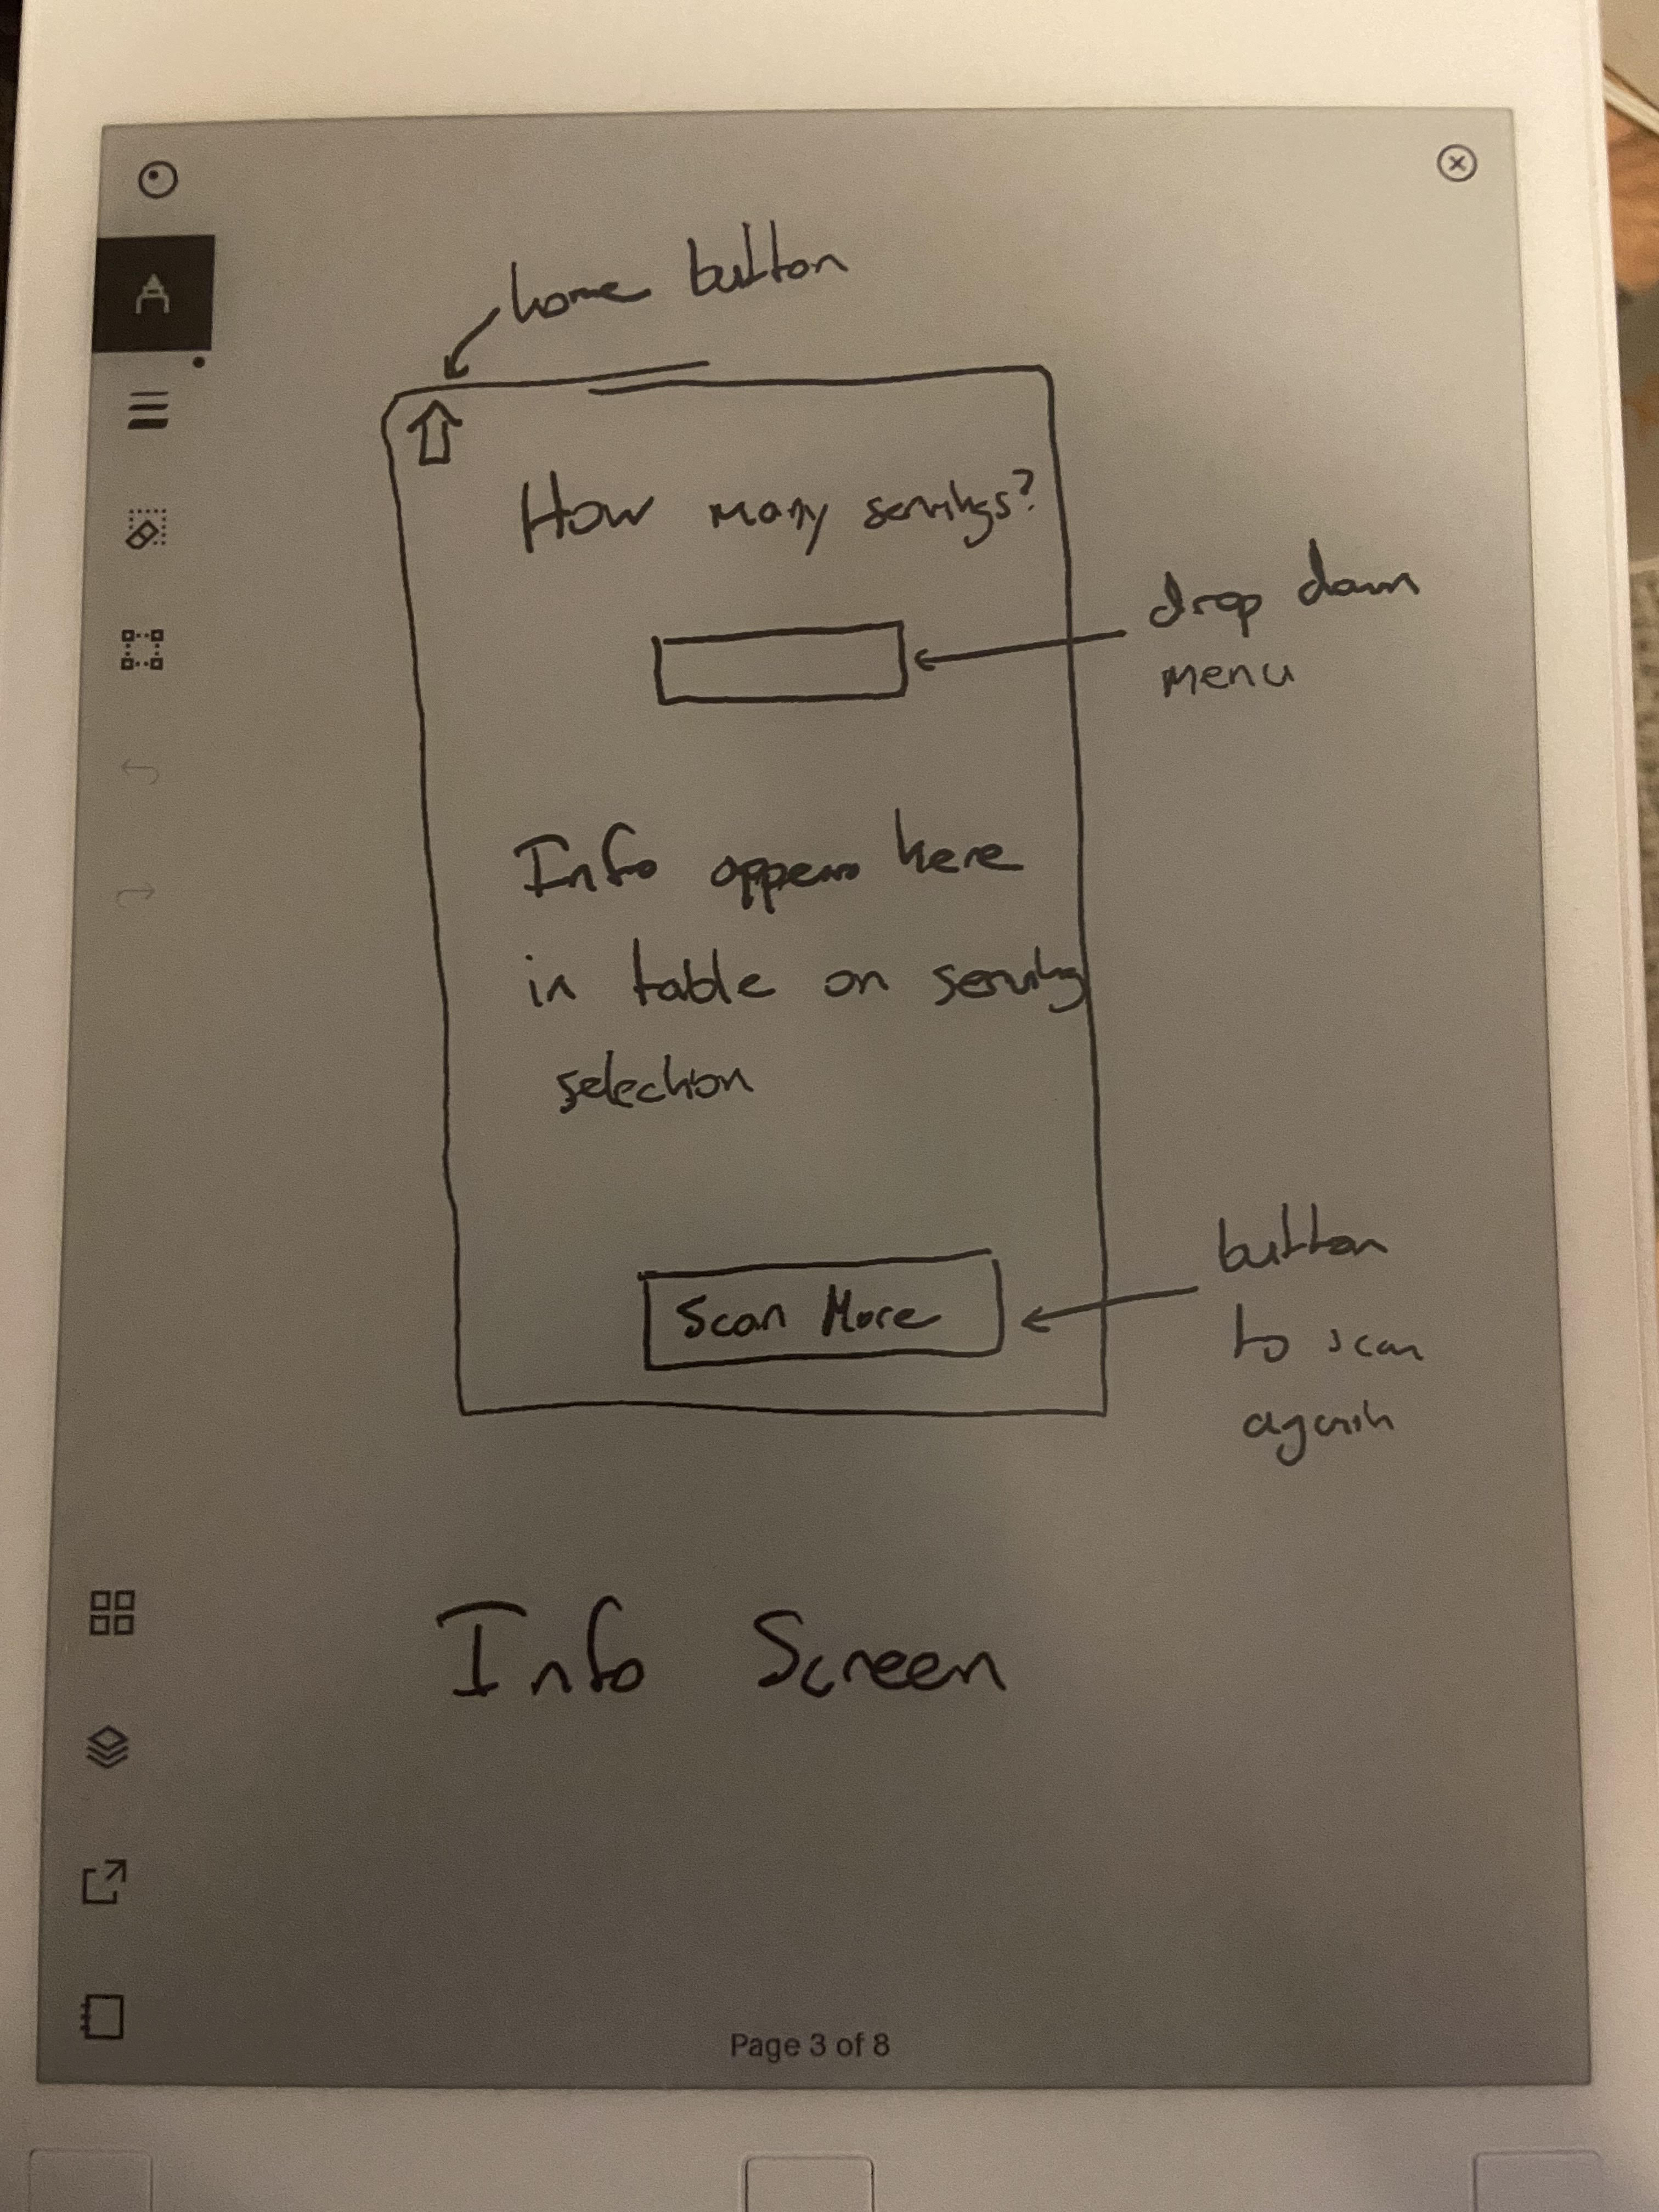 home button
How many servings?
drop down
menu
Info appears here
in table on serving
selection
Scan More
button
to scan
again
Info Screen
Page 3 of 8